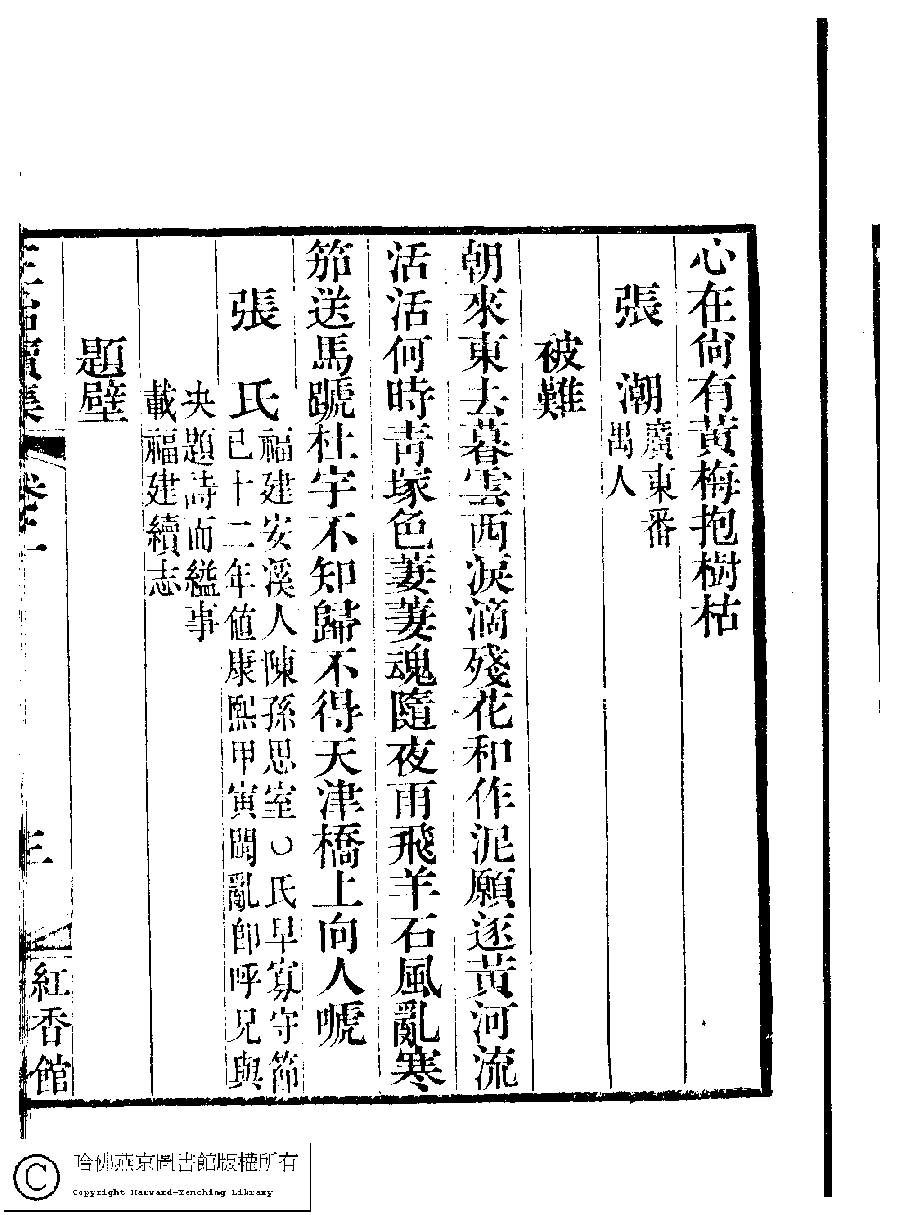 心在尙有黃梅抱樹枯
張潮廣東番
禺人
被難
朝來東去暮雲西淚滴殘花和作泥願逐黃河流
活活何時靑塚色萋萋魂隨夜雨飛羊石風亂寒
笳送馬蹏杜宇不知歸不得天津橋上向人嗁
張氏福建安溪人陳孫思室○氏早寡守節
已十二年値康熙甲寅閩亂卽呼兄與
夬題詩而縊事
載福建續志
題壁
續集 卷一
三
紅香館
哈佛燕京圖書館版權所有
Copyright Harvard-Yenching Library